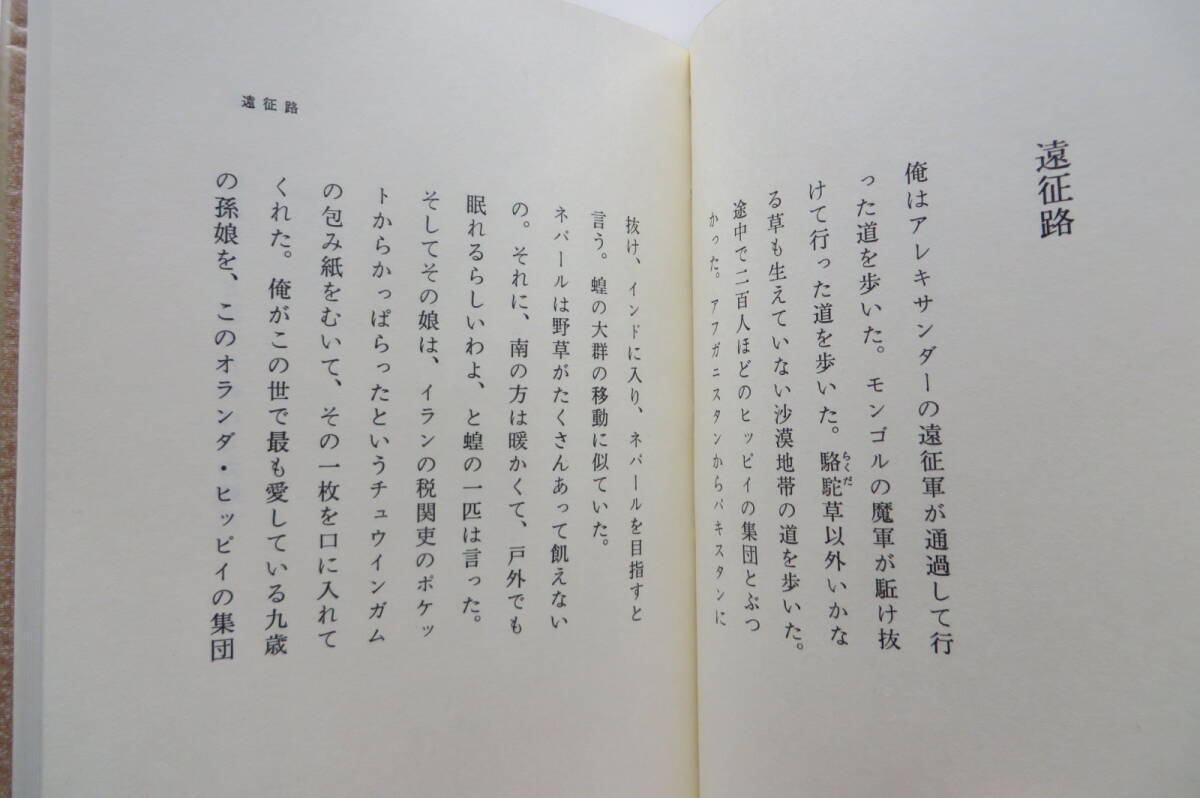 遠征路
俺はアレキサンダーの遠征軍が通過して行
った道を歩いた。モンゴルの魔軍が駈け抜
けて行った道を歩いた。駱駝草以外いかな
らくだ
る草も生えていない沙漠地帯の道を歩いた。
途中で二百人ほどのヒッピイの集団とぶつ
かった。アフガニスタンからパキスタンに
遠征路
抜け、インドに入り、ネパールを目指すと
言う。蝗の大群の移動に似ていた。
ネパールは野草がたくさんあって飢えない
の。それに、南の方は暖かくて、戸外でも
眠れるらしいわよ、と蝗の一匹は言った。
そしてその娘は、イランの税関吏のポケッ
トからかっぱらったというチュウインガム
の包み紙をむいて、その一枚を口に入れて
くれた。俺がこの世で最も愛している九歳
の孫娘を、このオランダ・ヒッピイの集団